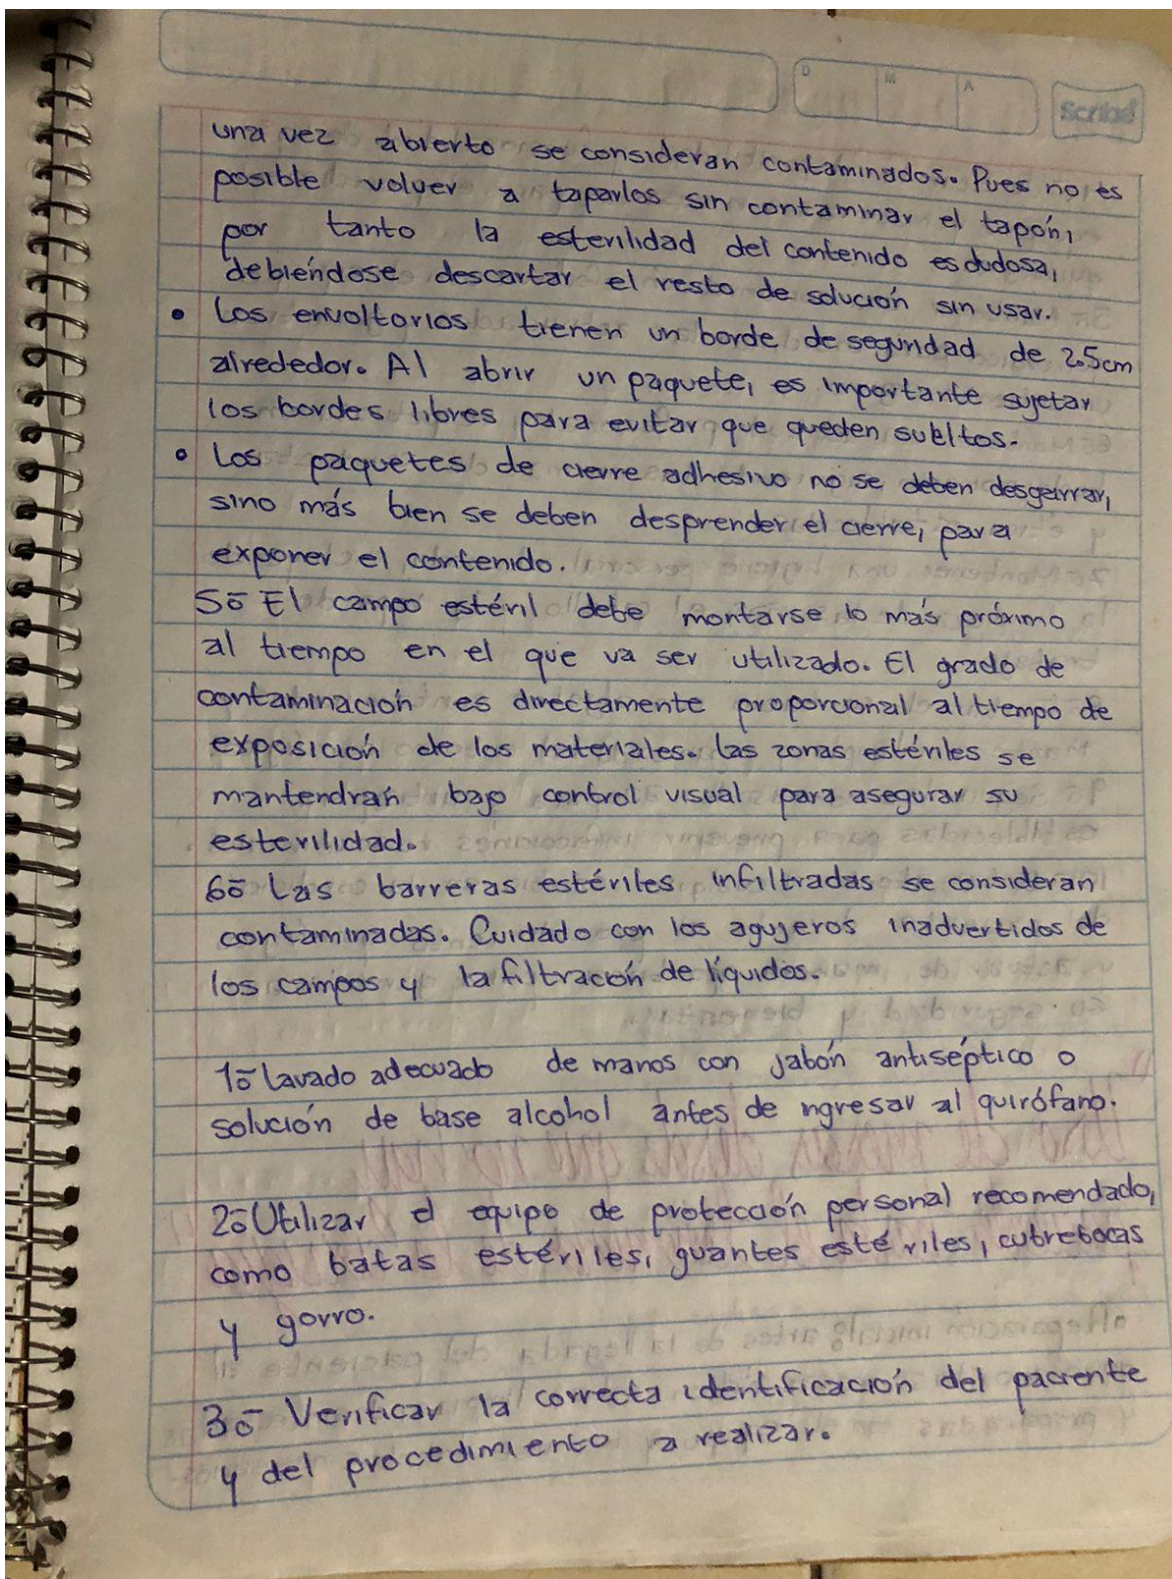 D M A Scribe
una vez abierto se consideran contaminados. Pues no es
posible volver a taparlos sin contaminar el tapón,
por tanto la esterilidad del contenido es dudosa,
debiéndose descartar el resto de solución sin usar.
• Los envoltorios tienen un borde de seguridad de 2.5cm
alrededor. Al abrir un paquete, es importante sujetar
los bordes libres para evitar que queden sueltos.
• Los paquetes de cierre adhesivo no se deben desgarrar,
sino más bien se deben desprender el cierre, para
exponer el contenido.
5o- El campo estéril debe montarse lo más próximo
al tiempo en el que va ser utilizado. El grado de
contaminación es directamente proporcional al tiempo de
exposición de los materiales. Las zonas estériles se
mantendrán bajo control visual para asegurar su
esterilidad.
6o- Las barreras estériles infiltradas se consideran
contaminadas. Cuidado con los agujeros inadvertidos de
los campos y la filtración de líquidos.
1o- Lavado adecuado de manos con jabón antiséptico o
solución de base alcohol antes de ingresar al quirófano.
2o- Utilizar el equipo de protección personal recomendado,
como batas estériles, guantes estériles, cubrebocas
y gorro.
3o- Verificar la correcta identificación del paciente
y del procedimiento a realizar.